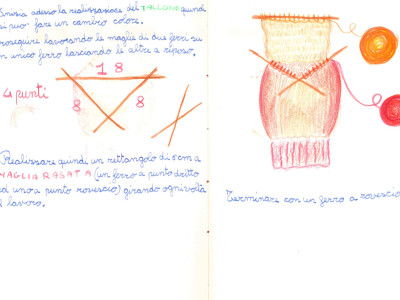 Inizia adesso la realizzazione del TALLONE quindi
si puo' fare un cambio colore.
Proseguire lavorando le maglie di due ferri su
un unico ferro lasciando le altre a riposo.
18
4 punti
8 8
Realizzare quindi un rettangolo di 5 cm a
MAGLIA RASATA (un ferro a punto dritto
ed uno a punto rovescio) girando ogni volta
il lavoro.
Terminare con un ferro a rovescio